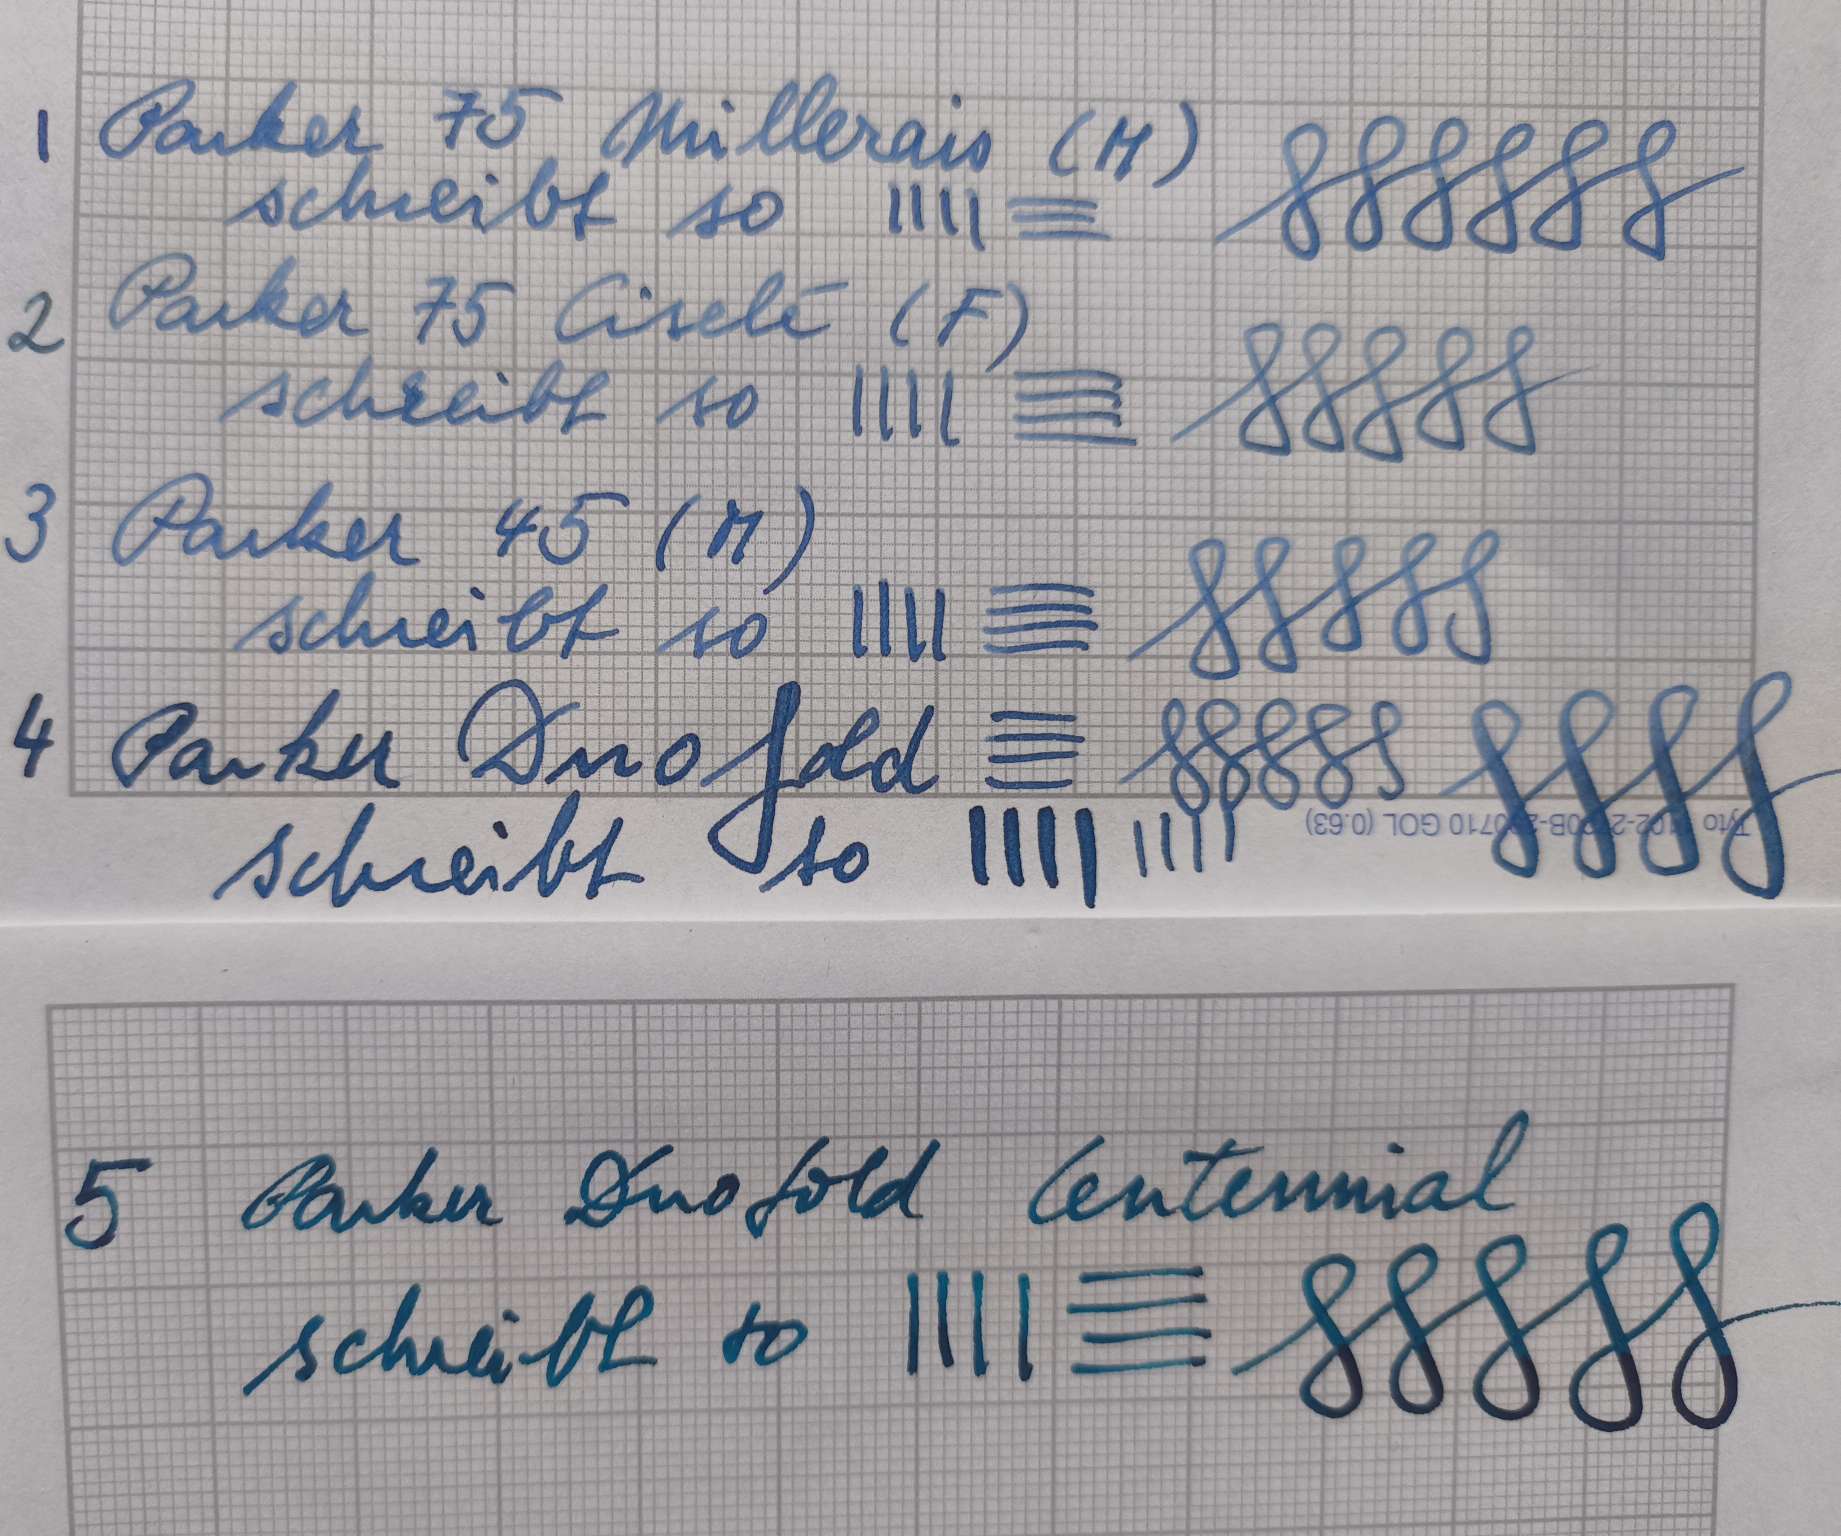 1 Parker 75 Millerais (M)
schreibt so
2 Parker 75 Ciselé (F)
schreibt so
3 Parker 45 (M)
schreibt so
4 Parker Duofold
schreibt so
GOL (0.63)
5 Parker Duofold Centennial
schreibt so